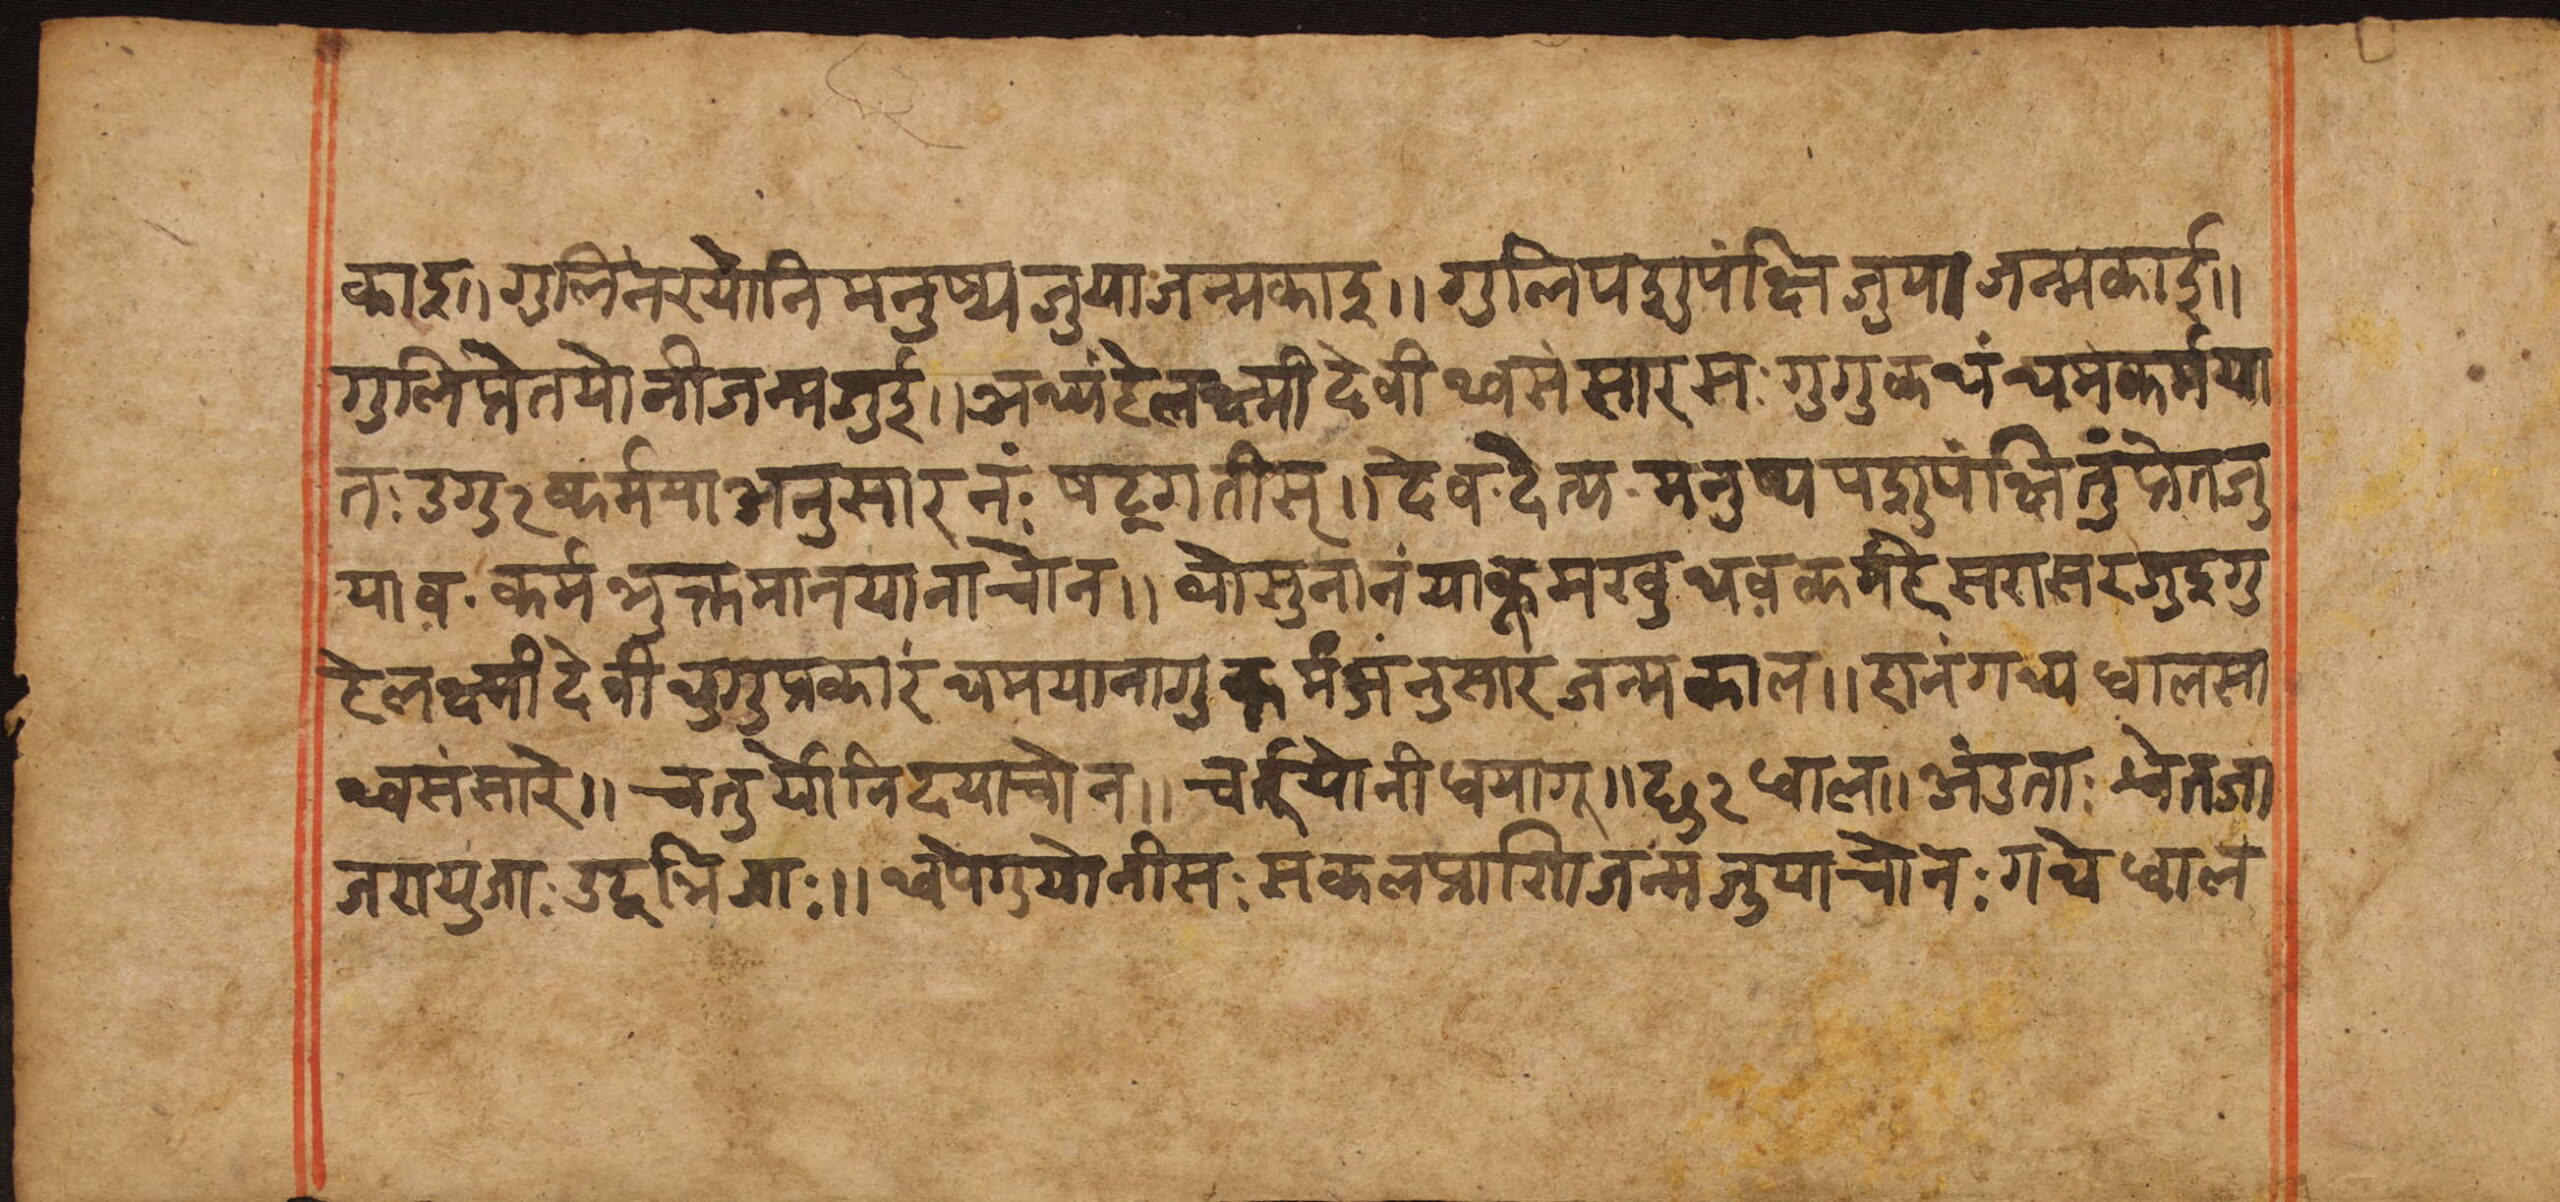 काइ।। गुलिं नरयोनि मनुष्य जुया जन्मकाइ।। गुलि पशुपंक्षि जुया जन्मकाई।।
गुलि प्रेतयोनी जन्म जुई।। अथ्यं हे लक्ष्मी देवी थ्व संसारस: गुगु कथं थमं कर्मया
त: उगु२ कर्मया अनुसारनं: षट्गतीस्।। देव. दैत्य. मनुष्य पशुपंक्षि तुं प्रेत जु
याव. कर्म भुक्तमानयाना चोन।। थ्वो सुनानं याकूमखु थव कर्महे सरासर जुइगु
हे लक्ष्मी देवी थुगु प्रकारं थमयानागु कर्मअंनुसारं जन्मकाल।। हानं गथ्य धालसा
थ्व संसारे।। चतुर्योनि दयाचोन।। चर्तुयोनी धयागू।। छु२ धाल।। अंडता: श्वेतजा
जरायुजा: उद्भिजा:।। थ्व पेगुयोनीस: सकल प्राणि जन्म जुयाचोन: गथे धाल